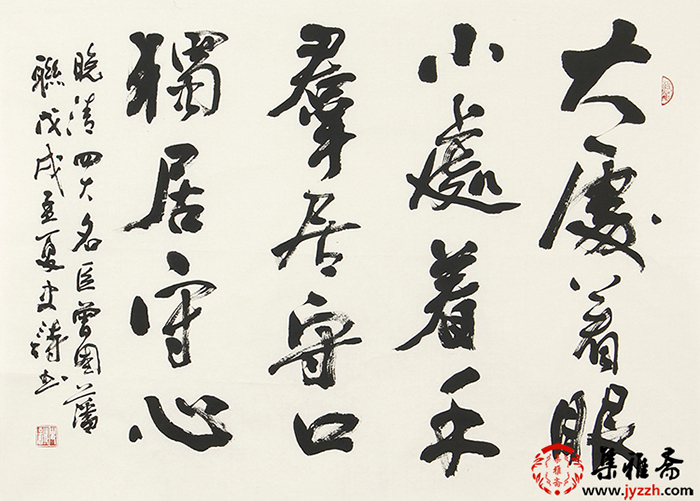 大處着眼
小處着手
羣居守口
獨居守心
晚清四大名臣曾國藩
聯戊戌孟夏史濤書
集雅斋
www.jyzzh.com